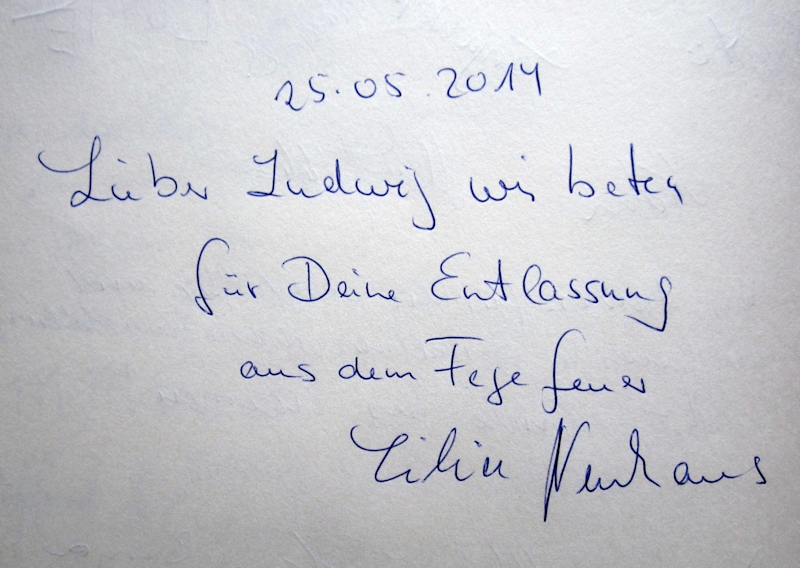 25.05.2014
Lieber Ludwig wir beten
für Deine Entlassung
aus dem Fegefeuer
Neuhaus